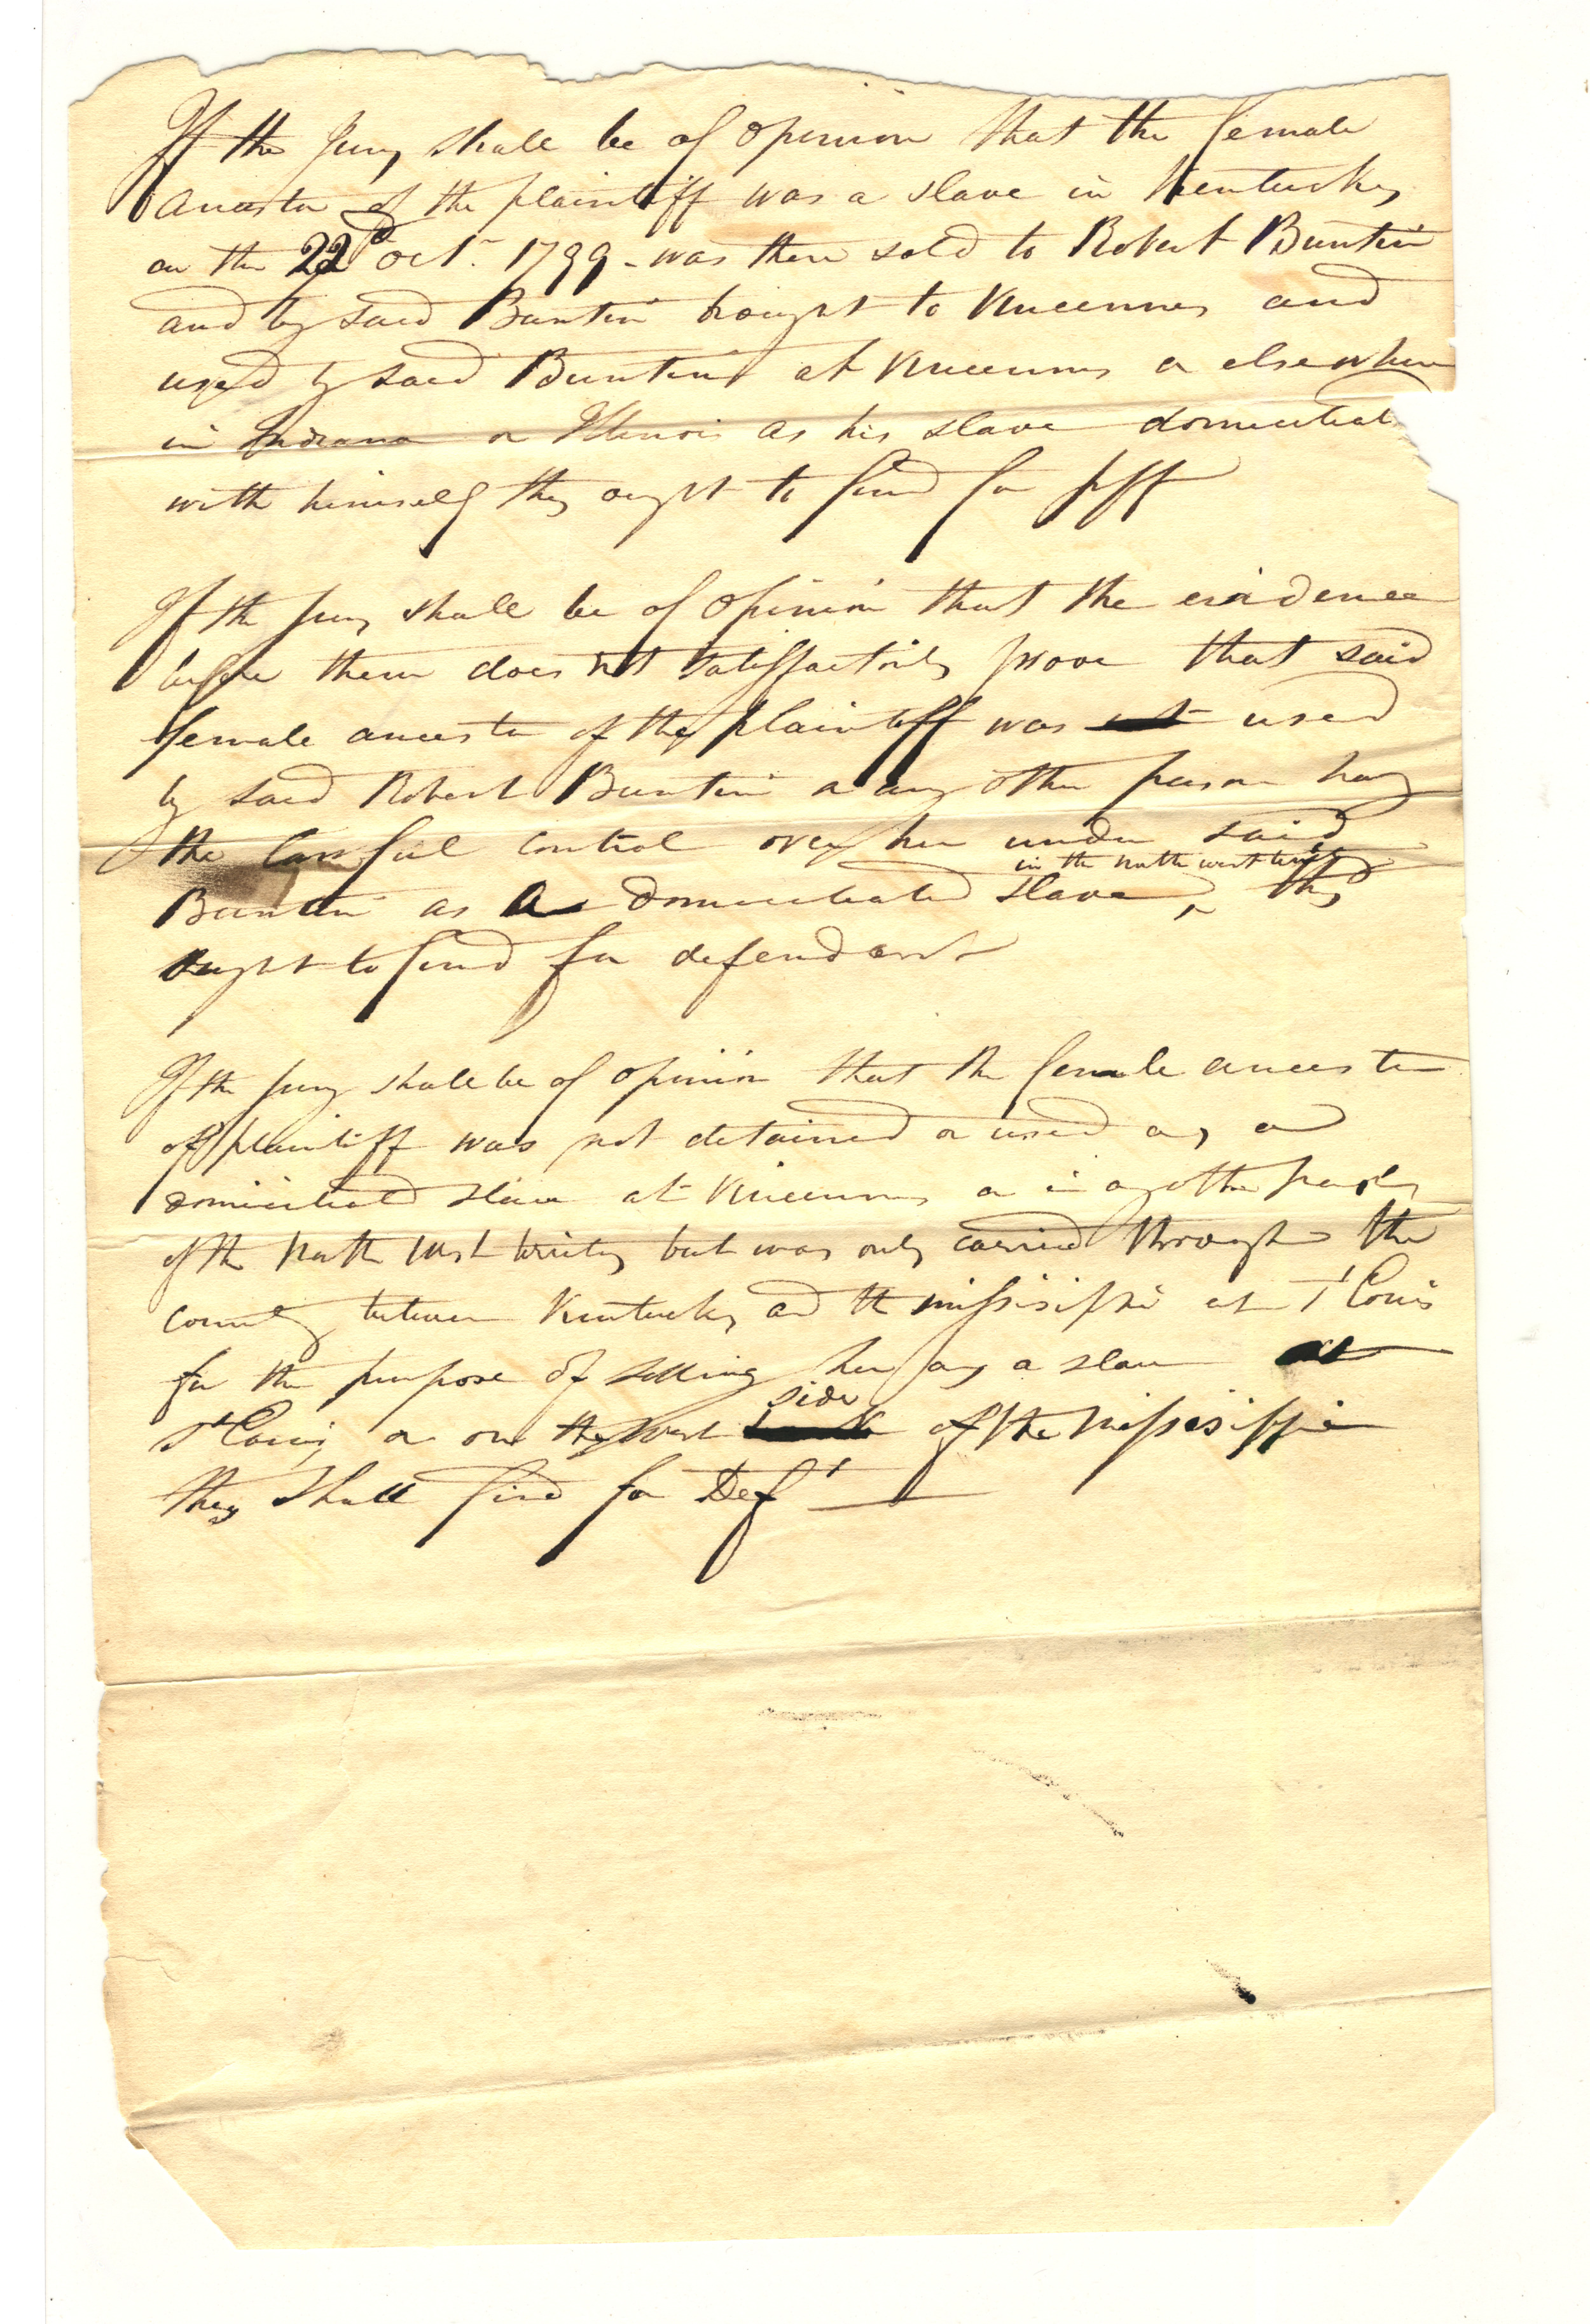 If the Jury shall be of opinion that the female
Ancestor of the plaintiff was a slave in Kentucky
on the 22d Oct. 1799 - was then sold to Robert Buntin
and by said Buntin brought to Vincennes and
used by said Buntin at Vincennes or elsewhere
in Indiana or Illinois as his slave domiciliated
with himself they ought to find for plff
If the jury shall be of Opinion that the evidence
before them does not satisfactorily prove that said
female ancestor of the plaintiff was used
by said Robert Buntin or any other person havg
the lawful control over her under said
in the North west territy
Buntin as a domiciliated slave, they
ought to find for defendant
If the jury shall be of opinion that the female ancestor
of plaintiff was not detained or used as a
domiciliated slave at Vincennes or in any other part
of the North West territy but was only carried through the
county between Kentucky and the missisippi at St Louis
for the purpose of selling her as a slave at
side
St Louis or on the West of the Missisippi
they shall find for Deft